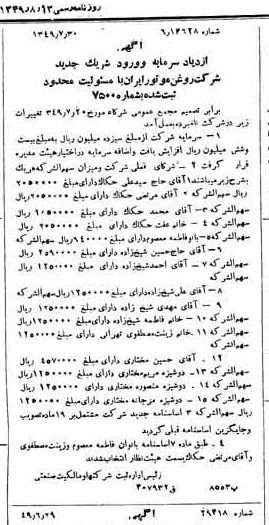 روزنامه رسمی ۱۳۴۹/۸/۱۳
شماره ۶/۱۴۶۲۸ ۱۳۴۹/۷/۳۰
آگهی
ازدیاد سرمایه وورود شریک جدید
شرکت روغن موتور ایران با مسئولیت محدود
ثبت شده بشماره ۷۵۰۰
برابر تصمیم مجمع عمومی شرکاء مورخ ۳۴۹/۷/۲۰ تغییرات
زیر در شرکت نامبرده بعمل آمد
۱ – سرمایه شرکت از مبلغ سیزده میلیون ریال به مبلغ بیست
وشش میلیون ریال افزایش یافت واضافه سرمایه در اختیار هیئت مدیره
قرار گرفت ۲ – شرکای فعلی شرکت ومیزان سهم الشرکه هریک
بشرح زیر میباشند ۱ آقای حاج سیدعلی حکاک دارای مبلغ ۲۰۵۰۰۰۰
ریال سهم الشرکه ۲ آقای مرتضی حکاک دارای مبلغ ۲۰۵۰۰۰۰ ریال
سهم الشرکه ۳– آقای محمد حکاک دارای مبلغ ۲۰۵۰۰۰۰ ریال
سهم الشرکه ۴ – خانم عفت حکاک دارای مبلغ ۲۰۵۰۰۰۰ ریال
سهم الشرکه ۵– بانو فاطمه معصوم دارای مبلغ ۹۴۰۰۰۰ ریال سهم الشرکه
۶ – آقای حاج حسین شیخ زاده دارای مبلغ ۲۵۹۰۰۰۰ ریال
سهم الشرکه ۷ – آقای احمد شیخ زاده دارای مبلغ ۱۲۵۰۰۰۰ ریال
سهم الشرکه
۸ – آقای علی شیخ زاده دارای مبلغ ۱۲۵۰۰۰۰ ریال سهم الشرکه
۹ – آقای مهدی شیخ زاده دارای مبلغ ۱۲۵۰۰۰۰ ریال
سهم الشرکه ۱۰– خانم فاطمه شیخ زاده دارای مبلغ ۱۲۵۰۰۰۰ ریال
سهم الشرکه ۱۱– خانم زینت مصطفوی تهرانی دارای مبلغ ۱۲۵۰۰۰۰ ریال
سهم الشرکه
۱۲ – آقای حسین مختاری دارای مبلغ ۴۵۷۰۰۰۰ ریال
سهم الشرکه ۱۳– دوشیزه مریم مختاری دارای مبلغ ۱۲۵۰۰۰۰ ریال
سهم الشرکه ۱۴ – دوشیزه منصوره مختاری دارای ۱۲۵۰۰۰۰ ریال
سهم الشرکه ۱۵ – دوشیزه مرجانه مختاری دارای مبلغ ۱۲۵۰۰۰۰
ریال سهم الشرکه ۳ اساسنامه جدید شرکت مشتمل بر ۱۹ ماده تصویب
وجایگزین اساسنامه قبلی گردید
۴ – طبق ماده ۷ اساسنامه بانوان فاطمه معصوم وزینت مصطفوی
وآقای مرتضی حکاک بسمت هیئت نظار انتخاب شدند
رئیس اداره ثبت شرکتها ومالکیت صنعتی
پ ۸۵۵۳ ق ۳۰۷۹۳۲
۲۹۴۱۸ آگهی ۴۹/۶/۲۹